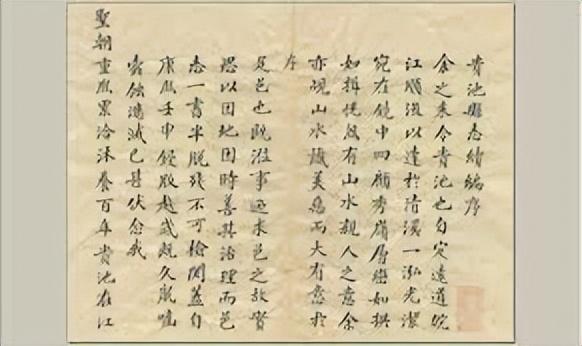 貴池縣志續編序
余之来令貴池也自定遠道皖
江順流以達於清溪一泓光潔
宛在鏡中四顧秀嶺層巒如拱
如揖恍然有山水親人之意余
亦覘山水識美惡而大有意於
序
是邑也既涖事亟求邑之故實
思以因地因時善其治理而邑
志一書半脱殘不可檢閱蓋自
康熙壬申鋟版越歲既久鼠嚙
蠹蝕漶滅已甚伏念我
聖朝重熙累洽養百年貴池在江